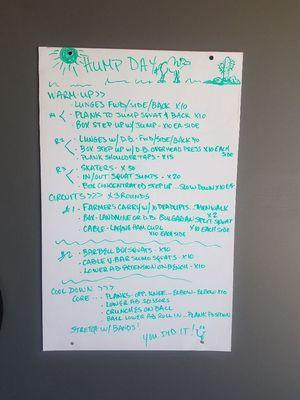 HUMP DAY
WARM-UP >>
- LUNGES FWD/SIDE/BACK X10
- PLANK TO JUMP SQUAT & BACK X10
- BOX STEP UP W/JUMP - X10 EA SIDE
R2 - LUNGES W/D.B. FWD/SIDE/BACK
- BOX STEP UP W/D.B. OVERHEAD PRESS X10 EACH SIDE
- PLANK SHOULDER TAPS - X15
R3 - SKATERS - X 30
- IN/OUT SQUAT JUMPS - X20
- BOX CONCENTRATED STEP UP... SLOW DOWN X10 EA
CIRCUITS >>> X 3 ROUNDS
#1 - FARMERS CARRY W/ DEADLIFTS... THEN WALK X2
- BOX - LANDMINE OR D.B. BULGARIAN SPLIT SQUAT X10 EACH SIDE
- CABLE - LAYING HAM CURL X10 EACH SIDE
#2 - BARBELL BOX SQUATS - X10
- CABLE V-BAR SUMO SQUATS - X10
- LOWER AB EXTENSION ON BENCH - X10
COOL DOWN >>>
CORE ... - PLANKS - OPP. KNEE... ELBOW - ELBOW - X10
- LOWER AB SCISSORS
- CRUNCHES ON BALL
- BALL LOWER AB ROLL IN... PLANK POSITION
STRETCH W/ BANDS!
YOU DID IT!